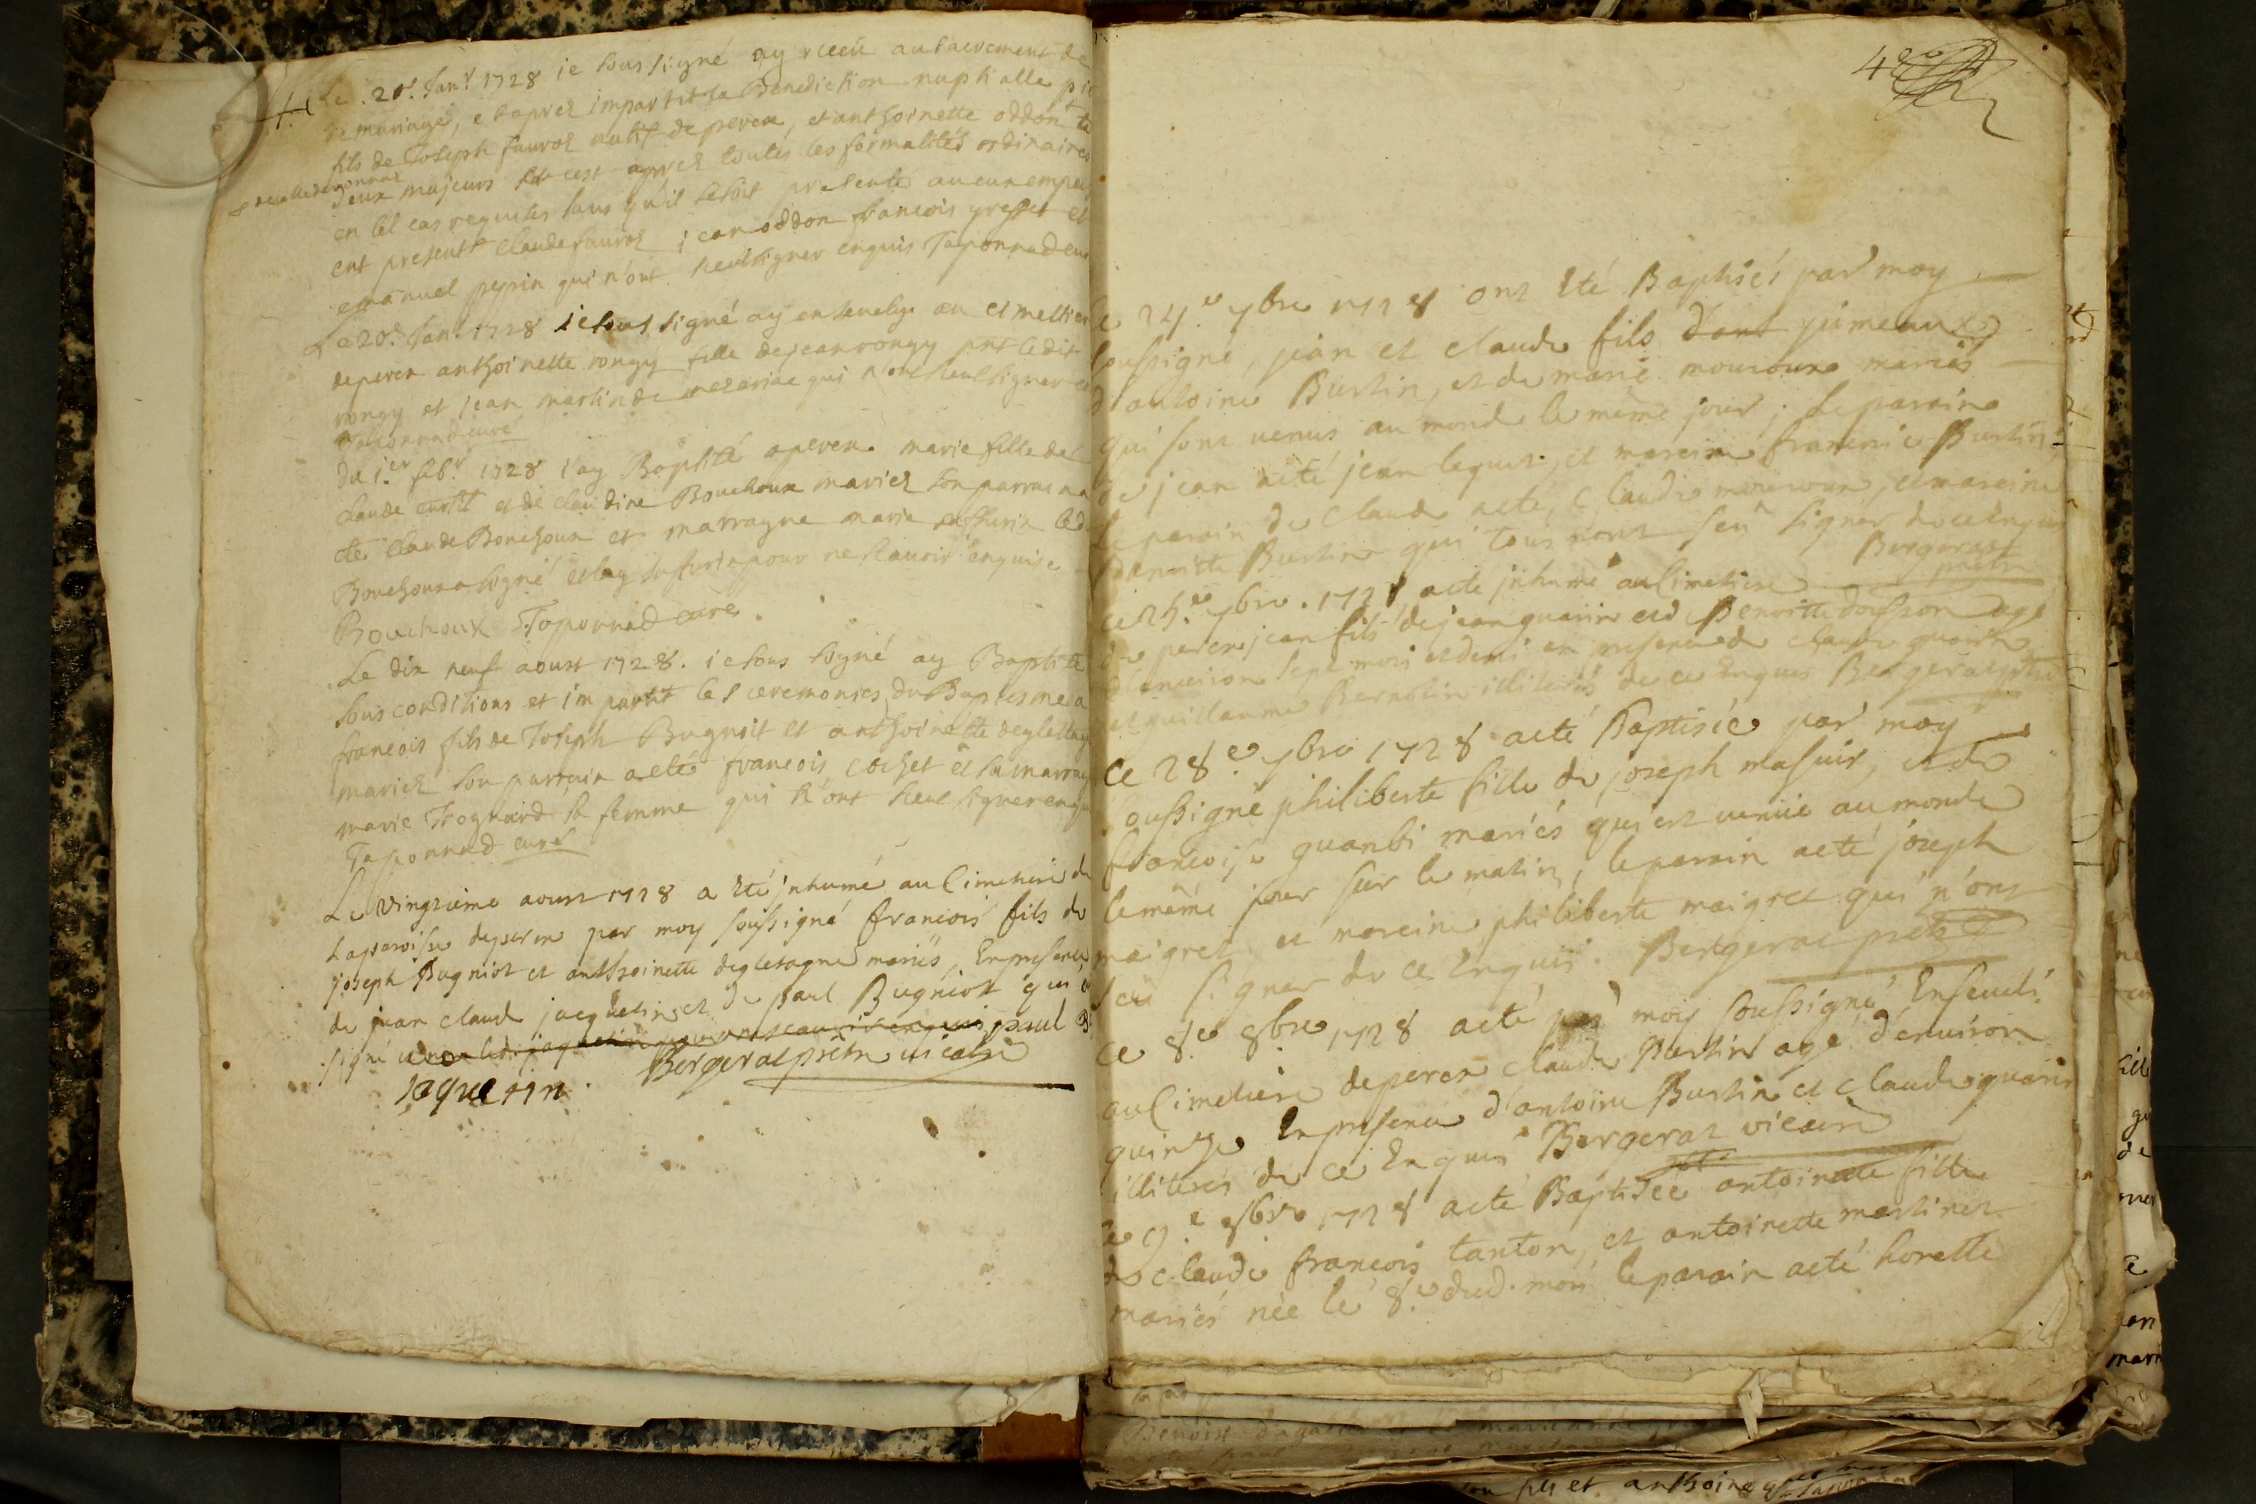 Le 20e. Janr 1728 ie sous signé ay receu au sacrement de
mariage, et aprez impartit la Benediction nuptialle
fils de Joseph fauroz natif de peren, et anthoinette oddon
deux majeurs et cest aprez toutes les formalités ordinaires
en tel cas requises sans qu'il se soit presenté aucun empe
ent present claude fauroz jean oddon francois greffet et
emanuel pepin qui n'ont sceu signer enquis Taponnad curé
Le 20e Janr 1728 ie sous signé ay ensevely au cimettier
de peren anthoinette rongy fille de jean rongy pnt ledit
rongy et jean martin de qui n'ont sceu signer
Taponnad curé
du 1er febr 1728 i'ay Baptisé a peren marie fille de
claude curtit et de claudine Bouchoux mariez son parrain a
été claude Bouchoux et marrayne marie
Bouchoux a signé et lay pour ne scavoir enquise
Bouchoux Taponnad curé
Le dix neuf aoust 1728. ie sous signé ay Baptisé
sous conditions et impartit les ceremonies du Baptesme a
francois fils de Joseph Bugniot et anthoinette degletagne
mariez son parrain a eté francois cochet et sa marray
marie Trognard sa femme qui n'ont sceu signer enquis
Taponnad curé
Le vingtieme aoust 1728 a été inhumé au Cimetiere de
La paroisse de peren par moy soussigné francois fils de
joseph Bugniot et anthoinette degletagne mariés, En presence
de jean claude jacquetin et de paul Bugniot qui
signé paul B
jaquetin Bergerat prêtre vicaire
4e
le 24.e 7bre 1728 ont été Baptisés par moy
soussigné, jean et claude fils d'ant jumeaux
d'antoine Burtin, et de marie mouroux mariés
qui sont venus au monde le même jour; le parain
de jean a eté jean lequin, et mareine francoise Burtin
le parain de claude a eté, claude mouroux, et mareine
Benoitte Burtin qui tous n'ont sceu signer de ce Enquis
Bergerat prêtre
ce 25.e 7bre. 1728 a eté inhumé au Cimetiere
de peren jean fils de jean guarin et de Benoitte dosson agé
d'environ sept mois et demi en presence de claude guarin
et guillaume Bernolin illiterés de ce Enquis Bergerat ptre
ce 28.e 7bre 1728 a eté Baptisée par moy
soussigné philiberte fille de joseph masuir, et de
francoise guambi mariés qui est venüe au monde
le même jour sur le matin, le parain a eté joseph
maigret et mareine philiberte maigret qui n'ont
sceu signer de ce Enquis. Bergerat prêtre
ce 8.e 8bre 1728 a eté par moy soussigné Enseveli
au Cimetiere de peren claude Burtin agé d'environ
quinze En presence d'antoine Burtin et claude guarin
illiterés de ce Enquis Bergerat vicaire
ce 9.e 8bre 1728 a eté Baptisée antoinette fille
de claude francois tanton, et antoinette martinet
mariés née le 8.e dud. mois le parain a eté honette